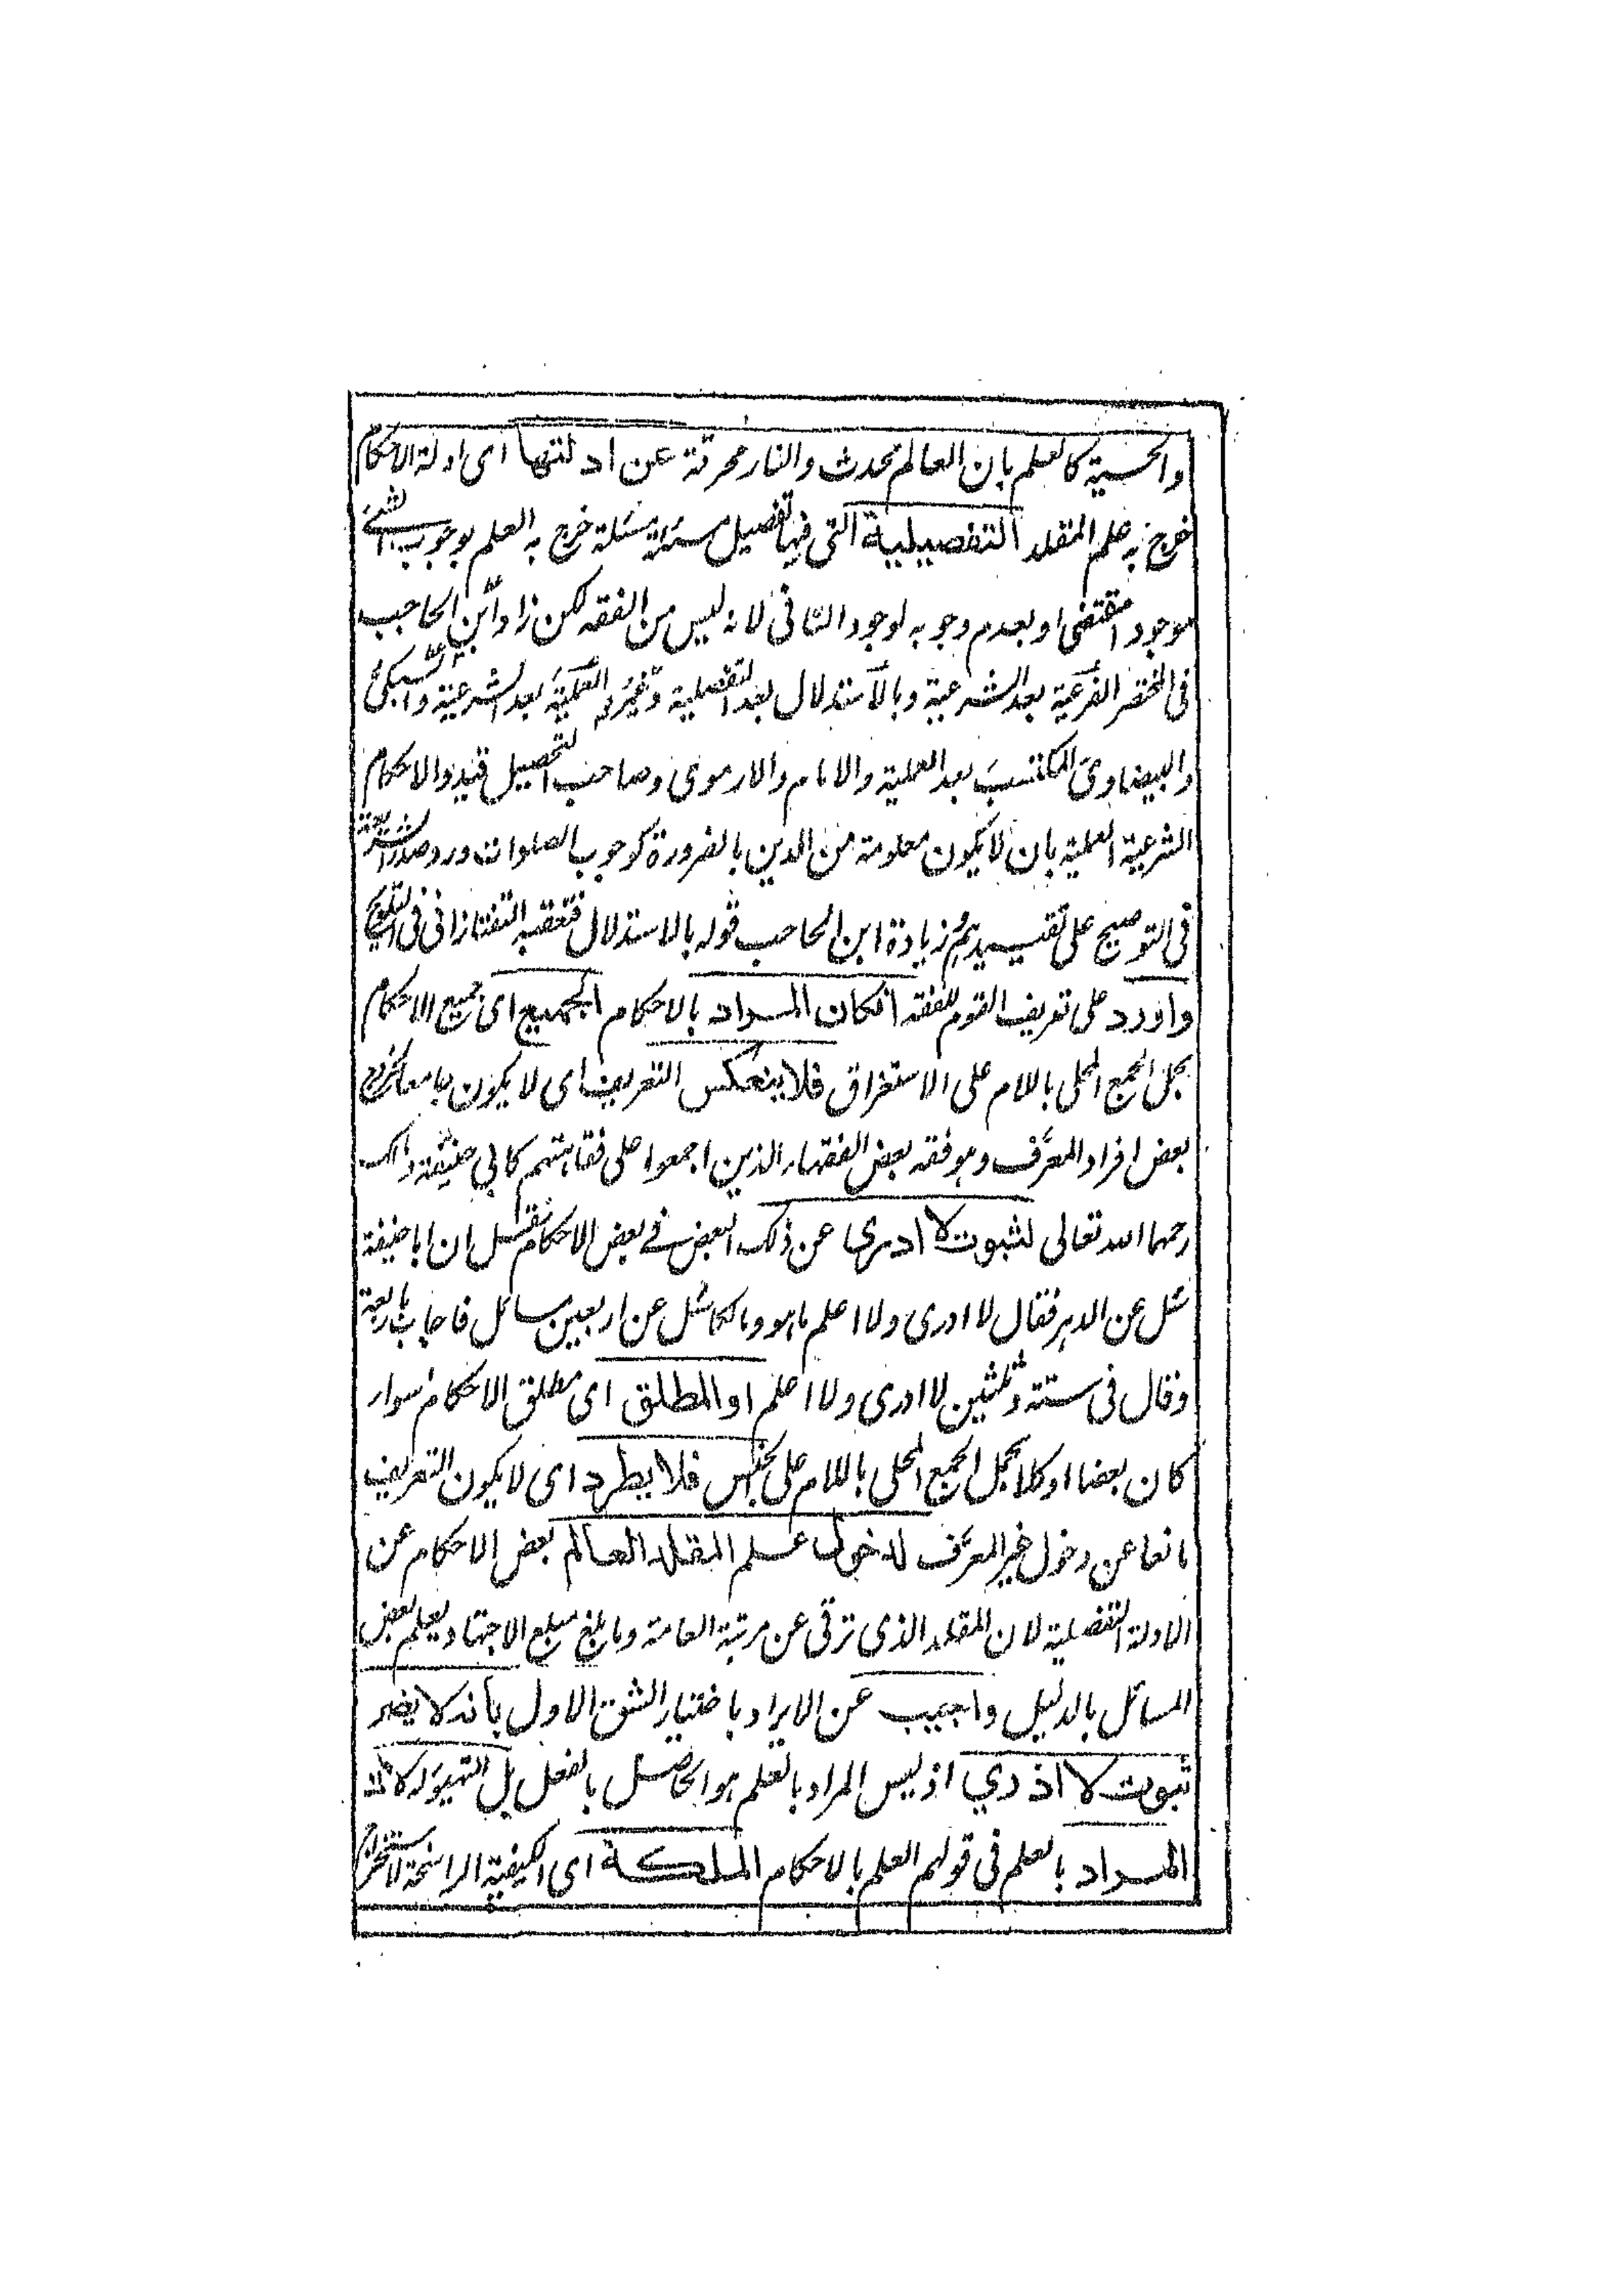 والحسية كالعلم بان العالم محدث والنار محرقة عن ادلتها اى ادلة الاحكام
خرج به علم المقلد التفصيلية التى فيها تفصيل مسئلة مسئلة خرج به العلم بوجوب الشئ
لوجود المقتضى او بعدم وجوبه لوجود النافى لانه ليس من الفقه لكن زاد ابن الحاجب
فى المختصر الفرعية بعد الشرعية وبالاستدلال بعد التفصيلية وغيره العملية بعد الشرعية والسبكى
والبيضاوى المكتسب بعد العملية والامام والارموى وصاحب التحصيل قيدوا الاحكام
الشرعية العملية بان لا يكون معلومة من الدين بالضرورة كوجوب الصلوات ورد صدر الشريعة
فى التوضيح على تقييدهم وزيادة ابن الحاجب قوله بالاستدلال فتعقبه التفتازانى فى التلويح
واورد على تعريف القوم للفقه ان كان المراد بالاحكام الجميع اى جميع الاحكام
بحمل الجمع المحلى باللام على الاستغراق فلا ينعكس التعريف اى لا يكون جامعا لخروج
بعض افراد المعرَّف وهو فقه بعض الفقهاء الذين اجمعوا على فقاهتهم كابي حنيفة ومالك
رحمهما الله تعالى لثبوت لا ادرى عن ذلك البعض في بعض الاحكام نقل ان ابا حنيفة
سئل عن الدهر فقال لا ادرى ولا اعلم ما هو ومالكا سئل عن اربعين مسائل فاجاب باربعة
وقال فى ستة وثلثين لا ادرى ولا اعلم او المطلق اى مطلق الاحكام سواء
كان بعضا او كلا بحمل الجمع المحلى باللام على الجنس فلا يطرد اى لا يكون التعريف
مانعا عن دخول غير المعرَّف لدخول علم المقلد العالم بعض الاحكام عن
الادلة التفصيلية لان المقلد الذى ترقى عن مرتبة العامة وما بلغ مبلغ الاجتهاد يعلم بعض
المسائل بالدليل واجيب عن الايراد باختيار الشق الاول بانه لا يضر
ثبوت لا ادري اذ ليس المراد بالعلم هو الحاصل بالفعل بل التهيؤ له لان
المراد بالعلم فى قولهم العلم بالاحكام الملكة اى الكيفية الراسخة لاستخراج